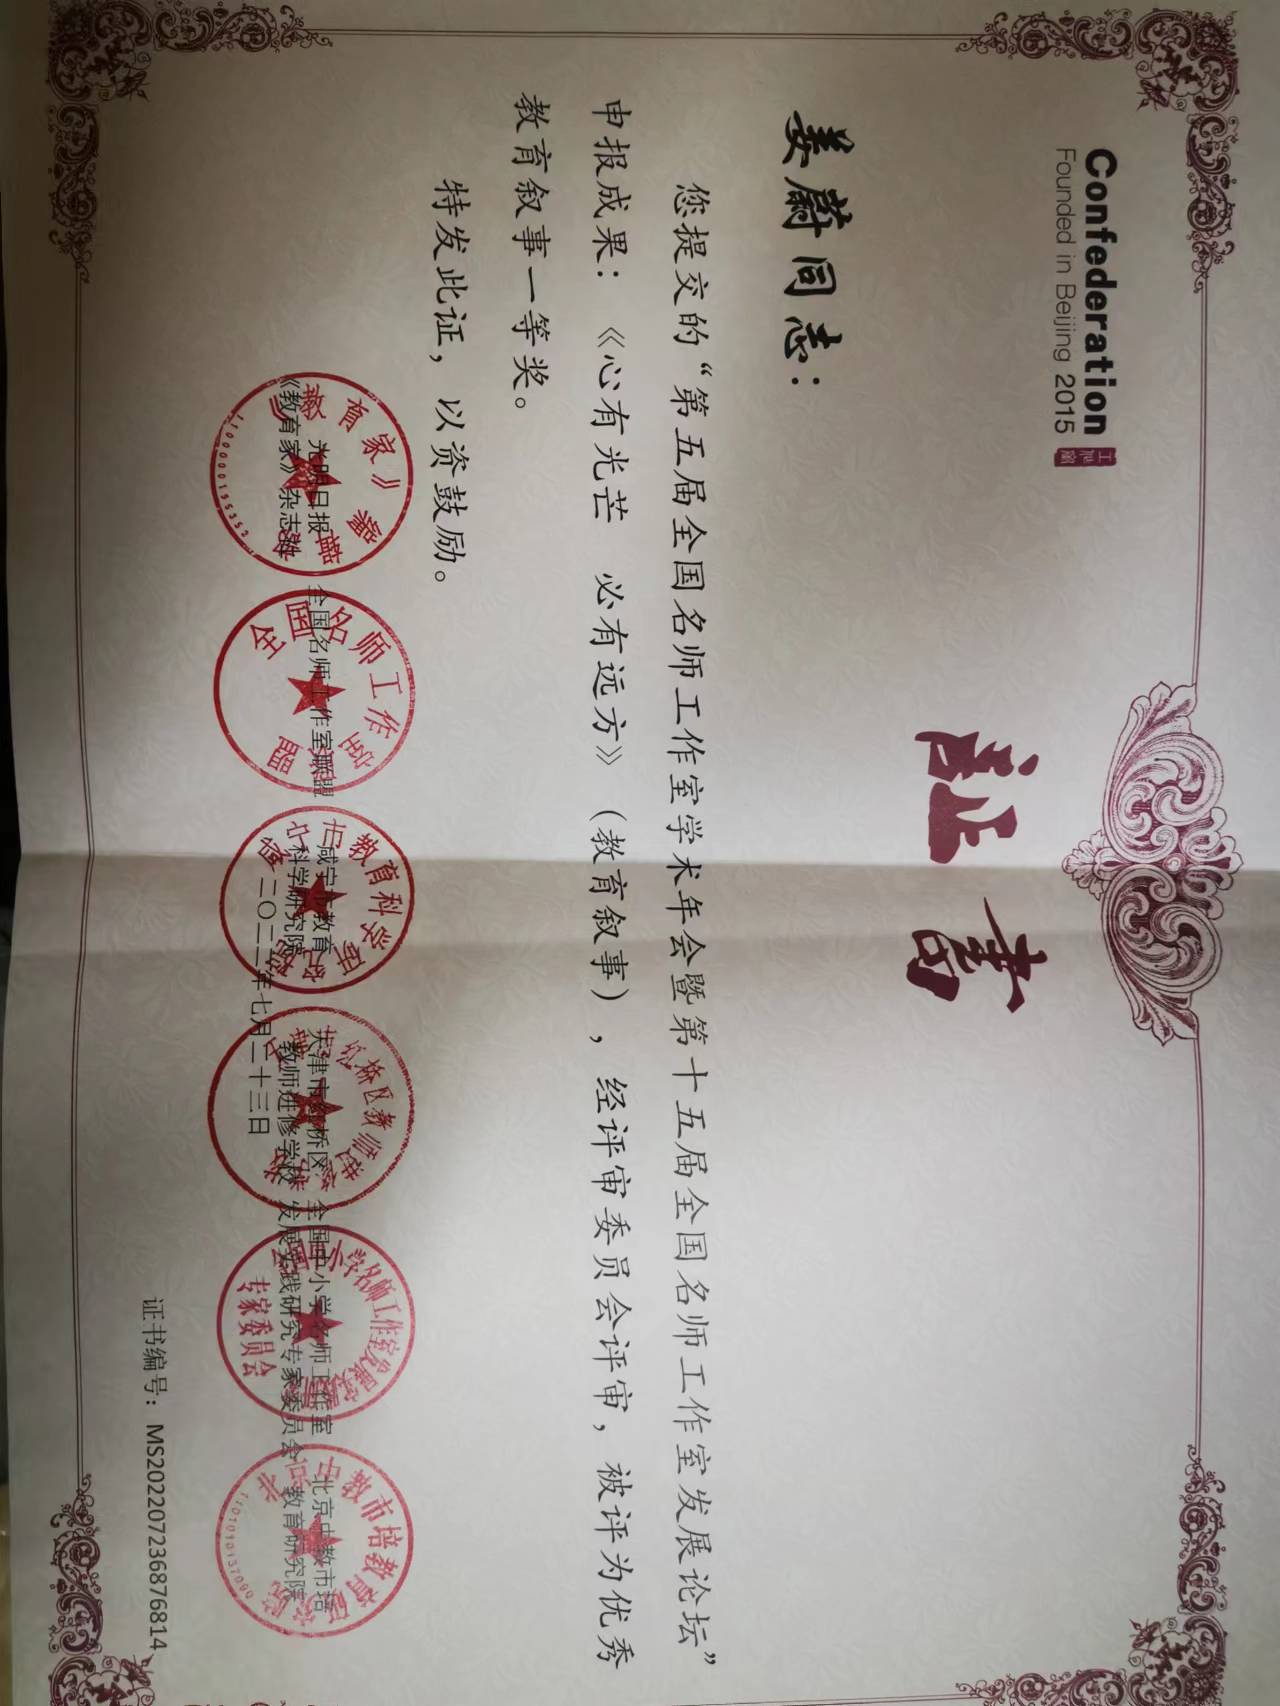 Confederation
Founded in Beijing 2015
证书
姜蔚同志：
您提交的“第五届全国名师工作室学术年会暨第十五届全国名师工作室发展论坛”
申报成果：《心有光芒 必有远方》（教育叙事），经评审委员会评审，被评为优秀
教育叙事一等奖。
特发此证，以资鼓励。
光明日报
《教育家》杂志社
全国名师工作室联盟
咸宁市教育
科学研究院
天津市红桥区
教师进修学校
全国中小学名师工作室
发展实践研究专家委员会
北京中教市培
教育研究院
二〇二二年七月二十三日
证书编号：MS202207236876814